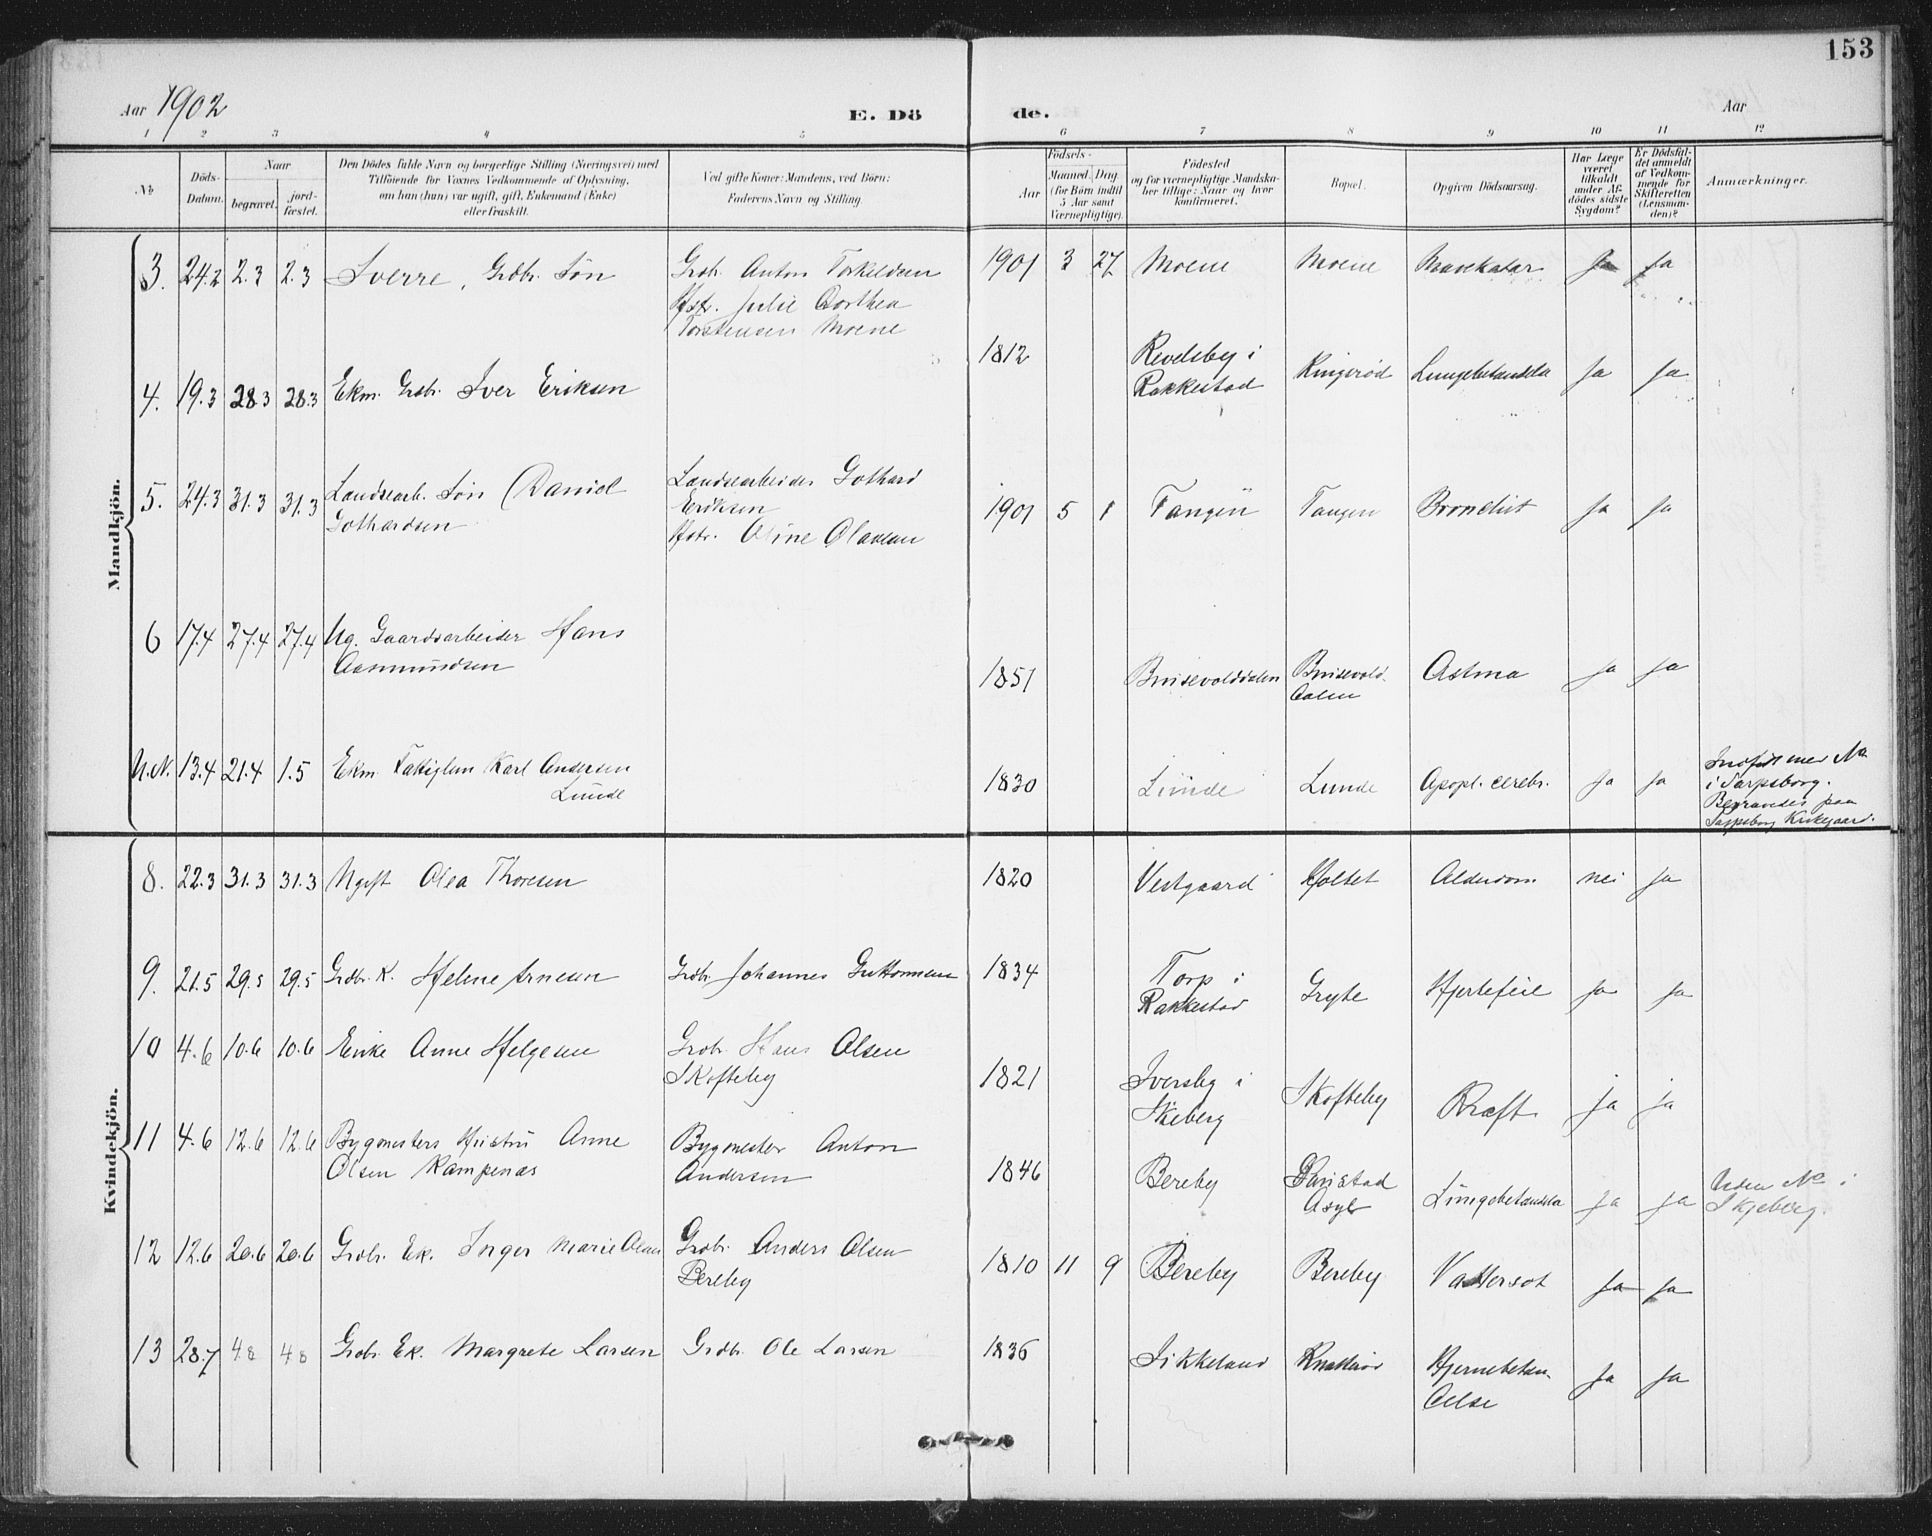 153
Aar 1902
E. Dö de.
Aar
1 2 3 4 5 6 7 8 9 10 11 12
No
Döds-Datum.
Naar
begravet.
jord-fæstet.
Den Dödes fulde Navn og borgerlige Stilling (Næringsvei) med
Tilföiende for Voxnes Vedkommende af Oplysning,
om han (hun) var ugift, gift, Enkemand (Enke)
eller fraskilt.
Ved gifte Koner: Mandens, ved Börn:
Faderens Navn og Stilling.
Födsels-
Aar
Maaned. Dag
(for Börn indtil
5 Aar samt
Værnepligtige).
Födested
og for værnepligtige Mandska-
ber tillige: Naar og hvor
konfirmeret.
Bopæl.
Opgiven Dödsaarsag.
Har Læge
været
tilkaldt
under Af-
dödes sidste
Sygdom?
Er Dödsfal-
det anmeldt
af Vedkom-
mende for
Skifteretten
(Lensman-
den)?
Anmærkninger.
Mandkjön.
3. 24.2 2.3 2.3 Sverre, Grdbr. Sön
Grdb. Anton Torkeldsen
Hstr. Julie Dorthea
Torstensen Moene
1901 3 27 Moene Moene Mavekatar Ja Ja
4. 19.3 28.3 28.3 Ekm. Grdbr. Iver Eriksen
1812 Revelsby i
Rakkestad
Ringerød Lungebetændelse Ja Ja
5. 24.3 31.3 31.3 Landsearb. Sön Daniel
Gothardsen
Landsearbeider Gothard
Eriksen
Hstr. Oline Olausen
1901 5 1 Tangen Tangen Bronchit Ja Ja
6 17.4 27.4 27.4 Ug. Gaardsarbeider Hans
Aasmundsen
1851 Brusevolddalen Brusevold
dalen
Astma Ja Ja
U.N. 13.4 21.4 1.5 Ekm. Karl Andersen
Lunde
1830 Lunde Lunde Apopl. cerebr. Ja Ja
Indført med No
i Sarpsborg.
Begravedes paa
Sarpsborg Kirkegaard.
Kvindekjön.
8. 22.3 31.3 31.3 Ugift Olea Thoresen
1820 Vestgaard Holtet Alderdom nei Ja
9. 21.5 29.5 29.5 Grdbr. K. Helene Arnesen
Grdbr. Johannes Guttormsen
1834 Torp i
Rakkestad
Gryte Hjertefeil Ja Ja
10 4.6 10.6 10.6 Enke Anne Helgesen
Grdbr. Hans Olsen
Skofteby
1821 Iversby i
Skeberg
Skofteby Kræft ja ja
11 4.6 12.6 12.6 Bygmesters Hustru Anne
Olsen Kampenæs
Bygmester Anton
Andersen
1846 Bereby
Asyl
Lungebetændelse Ja Ja
Uden No i
Skjeberg.
12 12.6 20.6 20.6 Grdbr. Ek. Inger Marie Olsen
Grdbr. Anders Olsen
Bereby
1810 11 9 Bereby Bereby Vattersot Ja Ja
13 28.7 4.8 4.8 Grdbr. Ek. Margrete Larsen
Grdbr. Ole Larsen
1836 Sikkeland Knatterød Hjernebetæn-
delse
Ja Ja